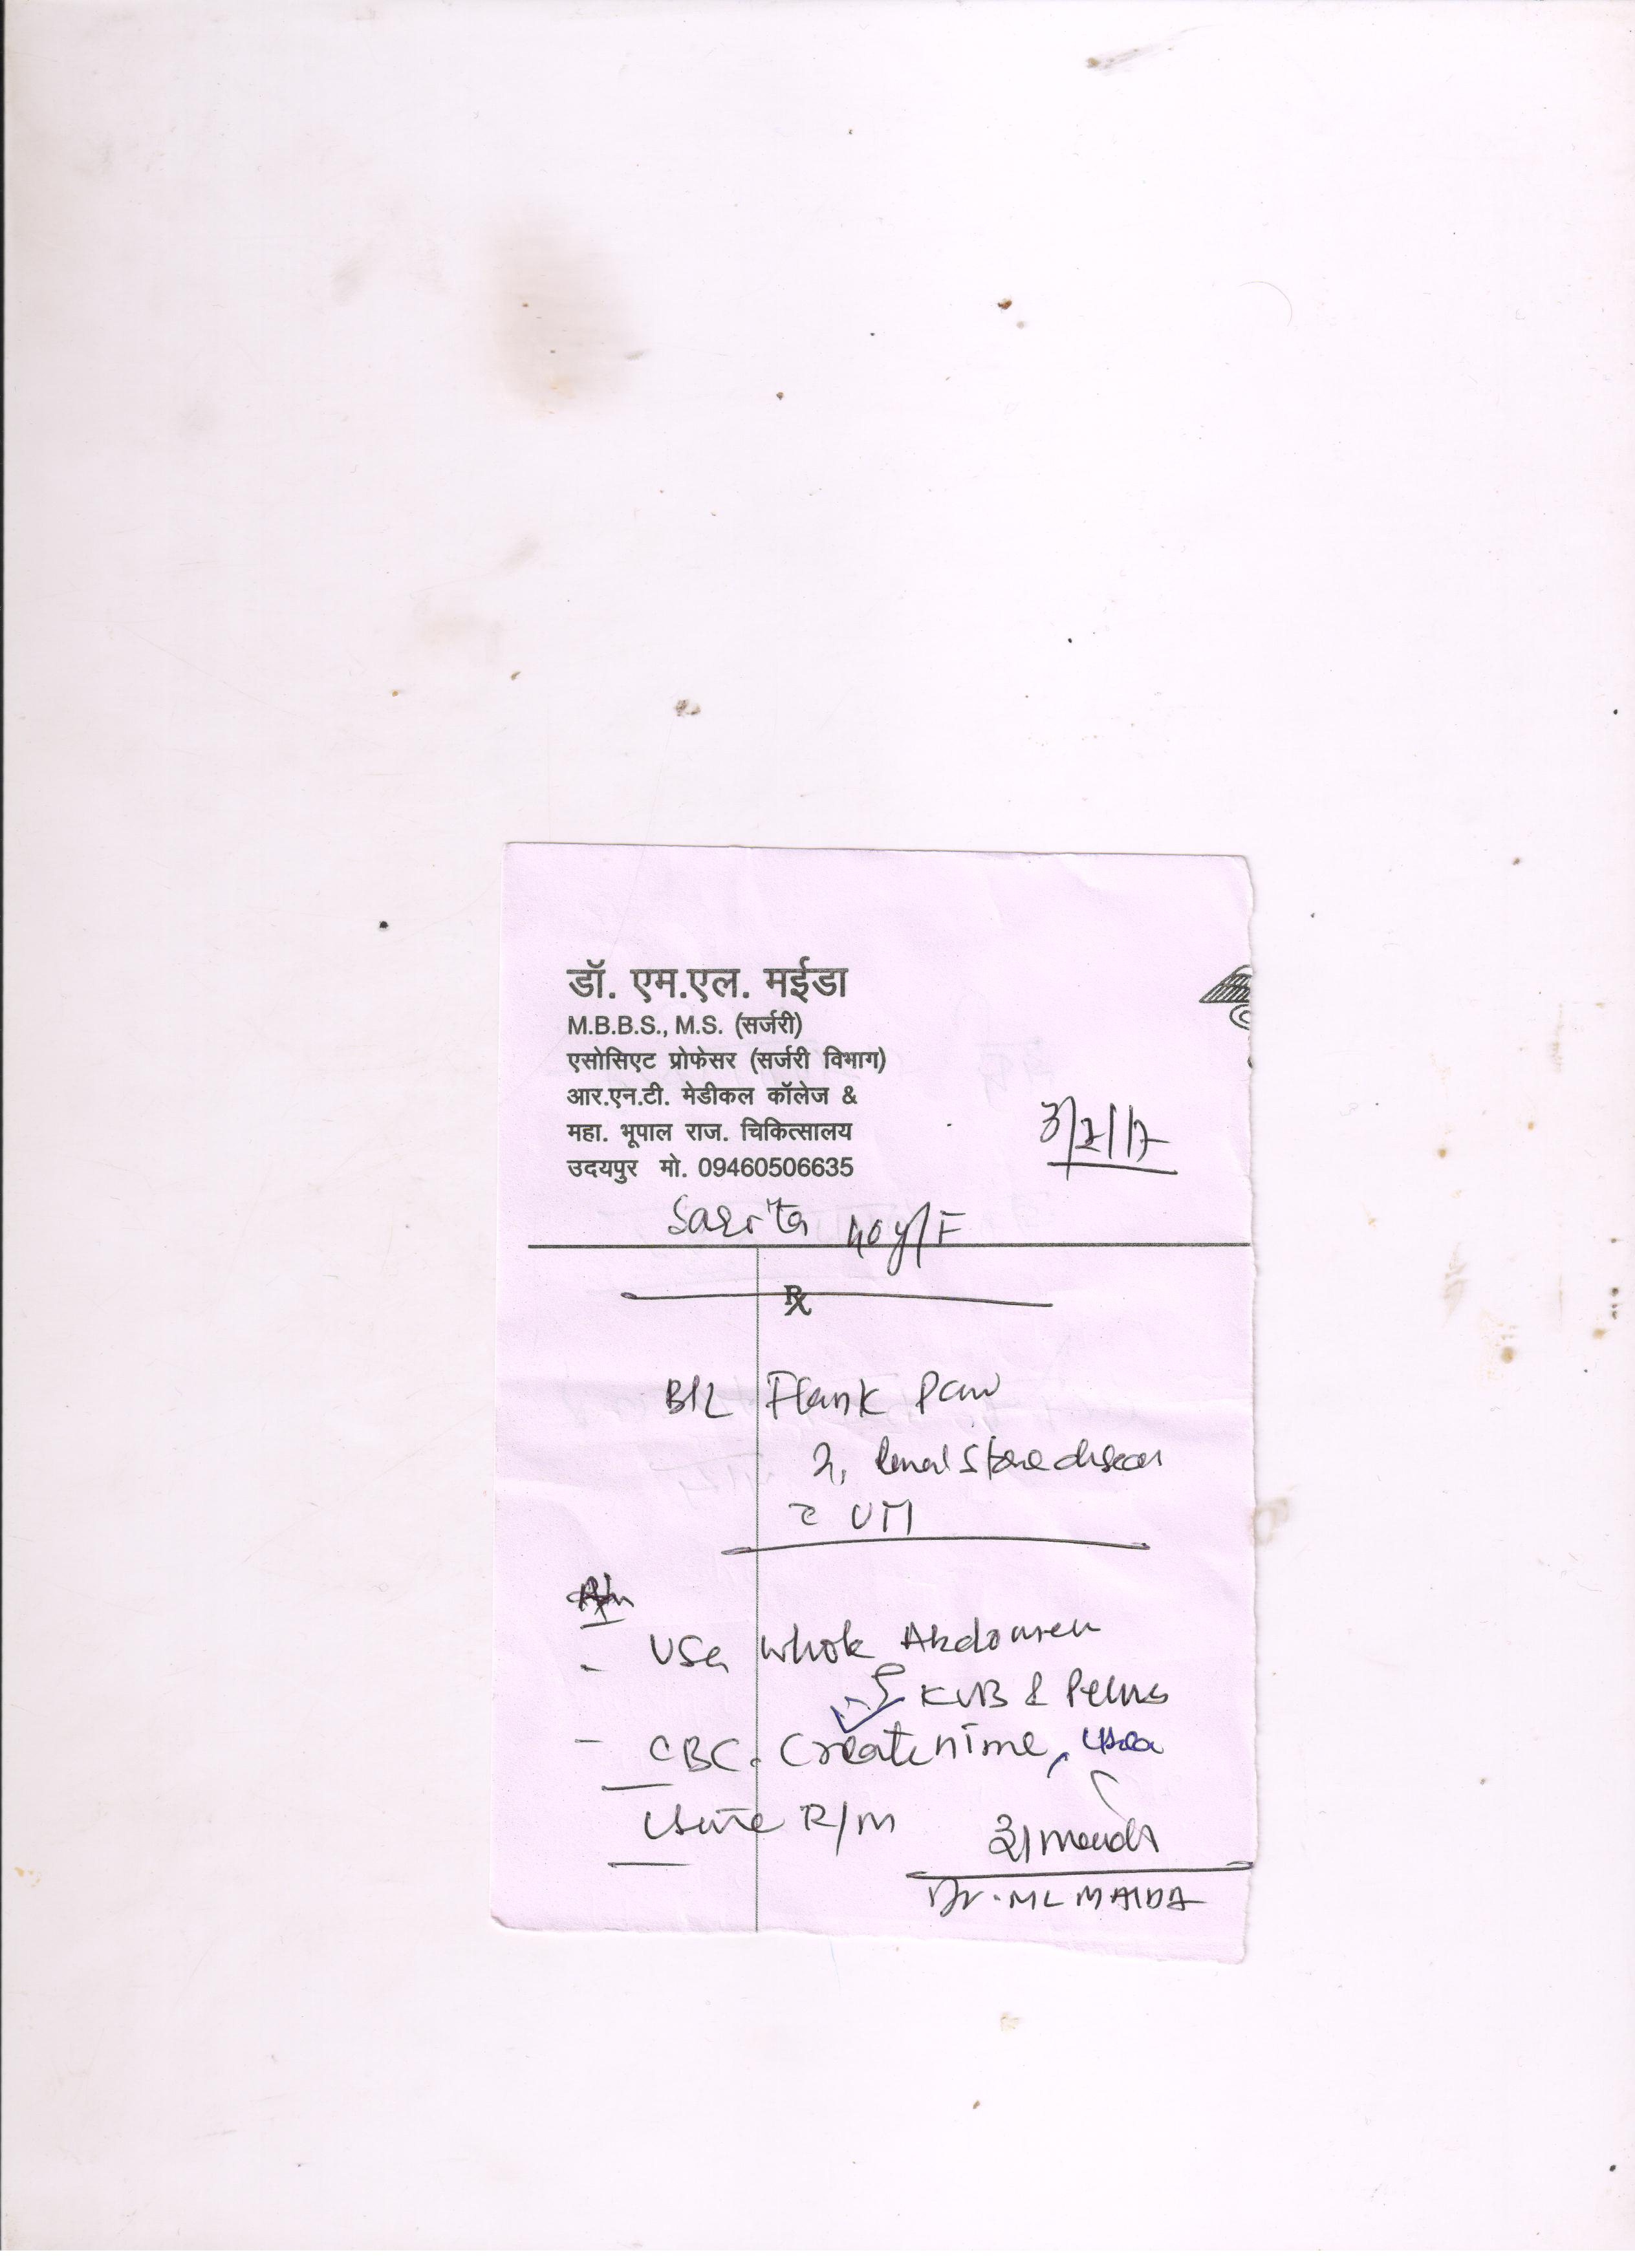 डॉ. एम.एल. मईडा
M.B.B.S., M.S. (सर्जरी)
एसोसिएट प्रोफेसर (सर्जरी विभाग)
आर.एन.टी. मेडीकल कॉलेज &
महा. भूपाल राज. चिकित्सालय
उदयपुर मो. 09460506635
3/2/17
Sarita 40y/F
℞
B/L Flank Pain
Renal Stone disease
c̄ UTI
- USG Whole Abdomen
KUB & Pelvis
- CBC. Createnime, Urea
Urine R/M
Dr. ML MAIDA